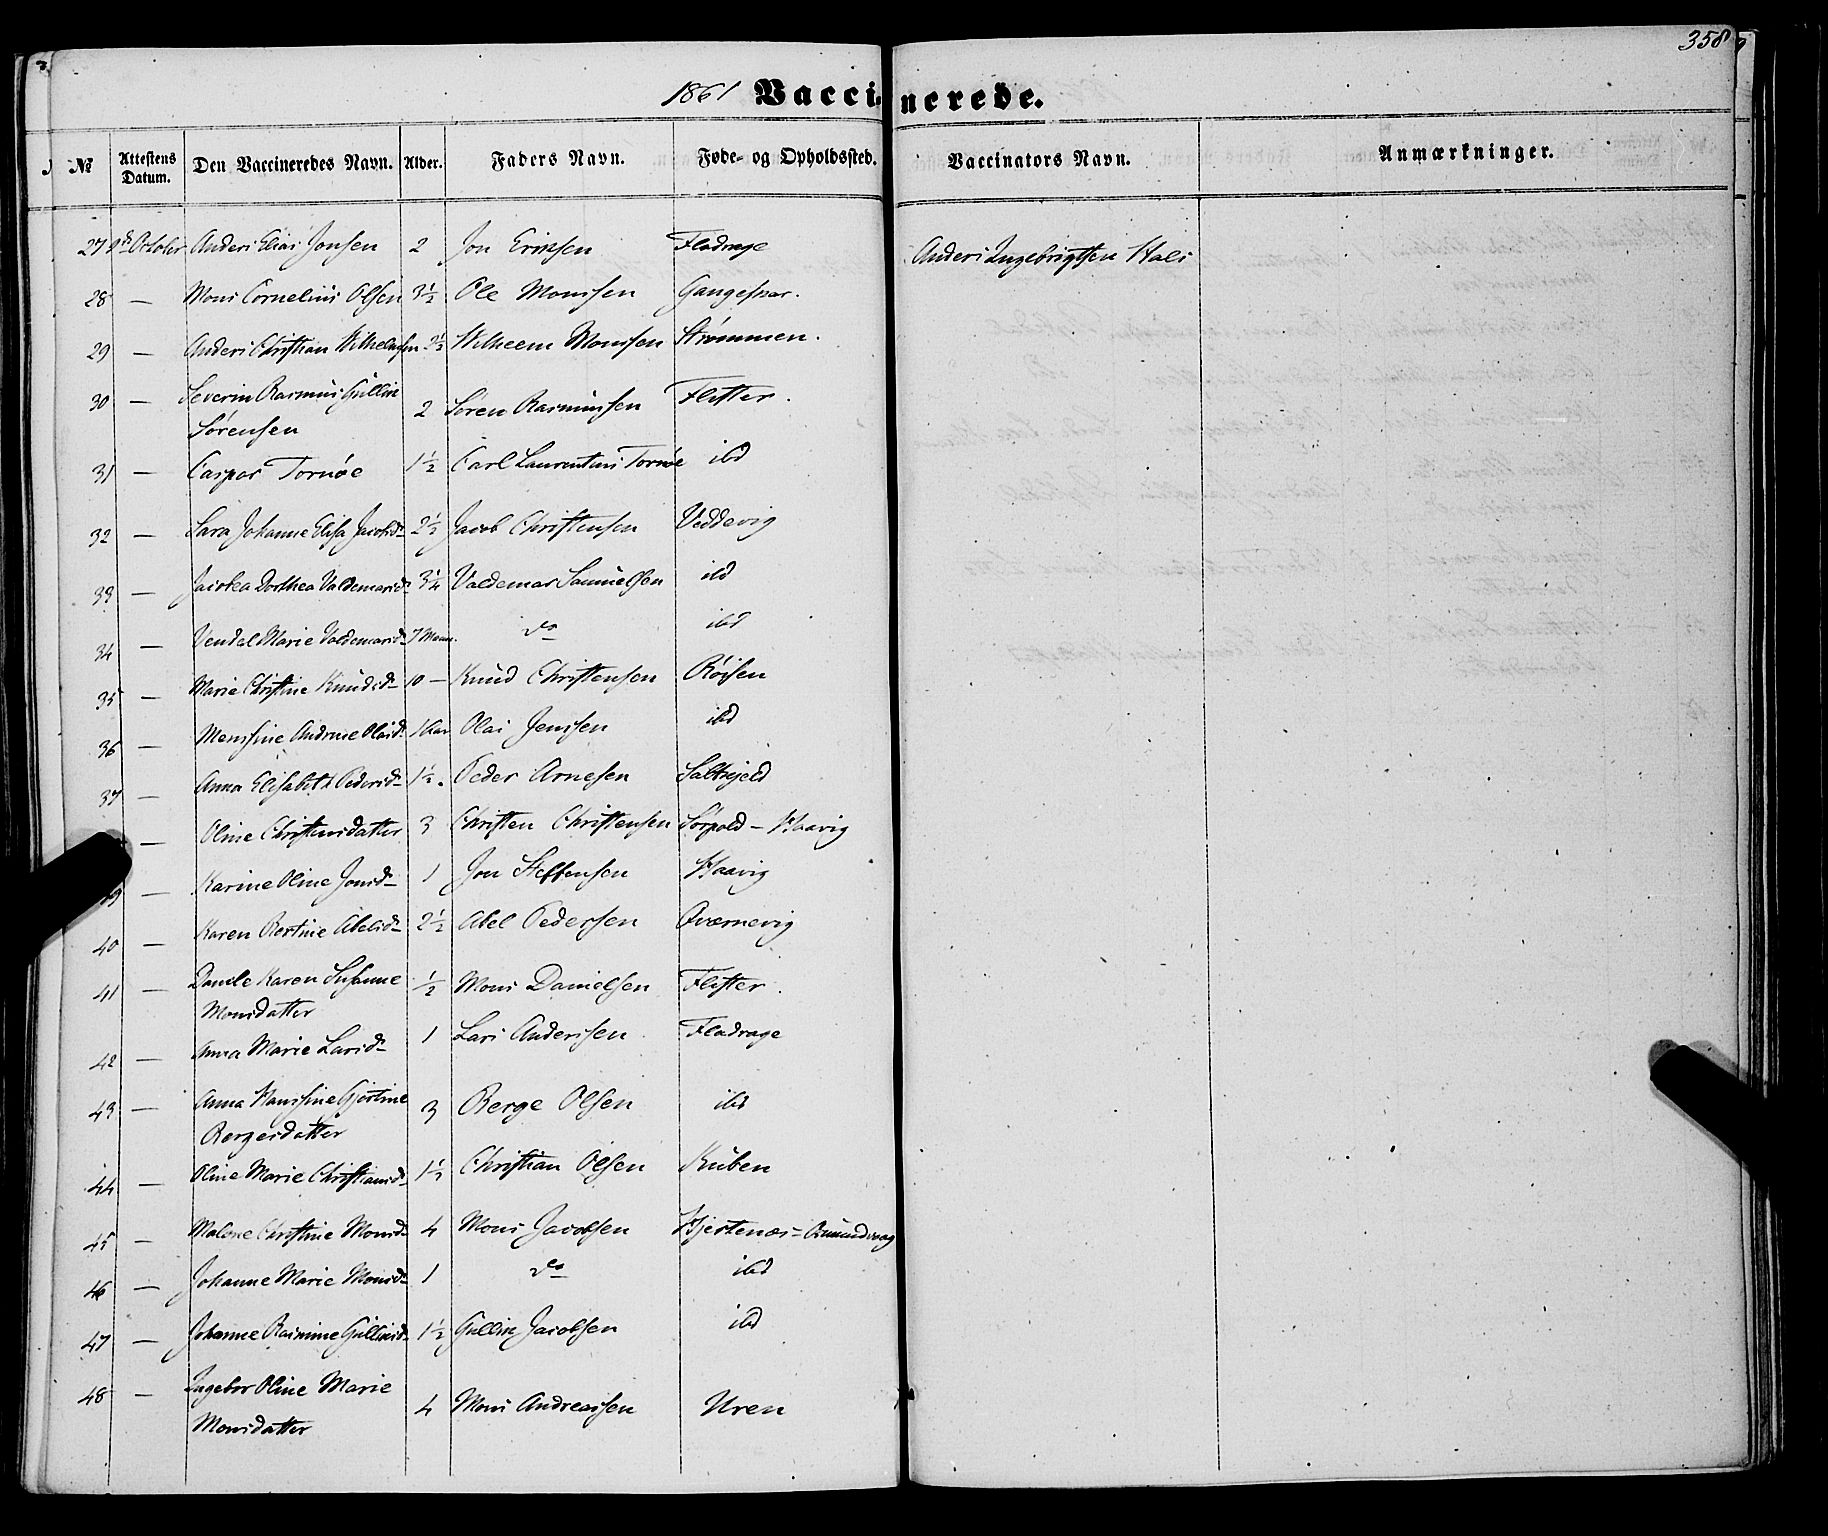 358
1861 Vaccinerede.
№ Attestens Datum. Den Vaccineredes Navn. Alder. Faders Navn. Føde- og Opholdssted. Vaccinators Navn. Anmærkninger.
27 October Anders Elias Jonsen 2 Jon Eriksen Fladrage Anders Ingebrigtsen Hals
28 — Mons Cornelius Olsen 3½ Ole Monssen
29 — Anders Christian Wilhelmsen 2½ Wilhelm Monssen Strømmen.
30 — Severin Rasmus Gullik 2 Søren Rasmussen Flister.
Sørensen
31 — Casper Tornøe 1½ Carl Laurentius Tornøe ibd
32 — Sara Johanne Elisa Jacobsd. 2½ Jacob Christensen Veddevig
33 — Jacobea Dorthea Valdemarsd. 3¼ Valdemar Samuelsen ibd
34 — Vendel Marie Valdemarsd. 7 Maan. do ibd
35 — Marie Christine Knudsd. 10 — Knud Christensen Røisen
36 — Monsine Andrine Olaisd. 1 Aar Olai Jenssen ibd
37 — Anna Elisabeth Pedersd. 1½ Peder Arnesen Saltskjeld
— Oline Christensdatter 3 Christen Christensen Sørpold - Haavig
39 — Karine Oline Jonsd. 1 Jon Steffensen Haavig
40 — Karen Bertine Abelsd. 2½ Abel Pedersen Qværnevig
41 — Danile Karen Susanne ½ Mons Danielsen Flister.
Monsdatter
42 — Anna Marie Larsd. 1 Lars Anderssen Fladrage
43 — Anna Hansine Gjertine 3 Berge Olsen ibd
Bergesdatter
44 — Oline Marie Christiansd. 1½ Christian Olsen Kuben
45 — Malene Christine Monsd. 4 Mons Jacobsen Hjertenæs = Amundvaag
46 — Johanne Marie Monsd. 1 do ibd
47 — Johanne Rasmine Gulliksd. 1½ Gullik Jacobsen ibd
48 — Ingebor Oline Marie 4 Mons Andreassen Uren
Monsdatter